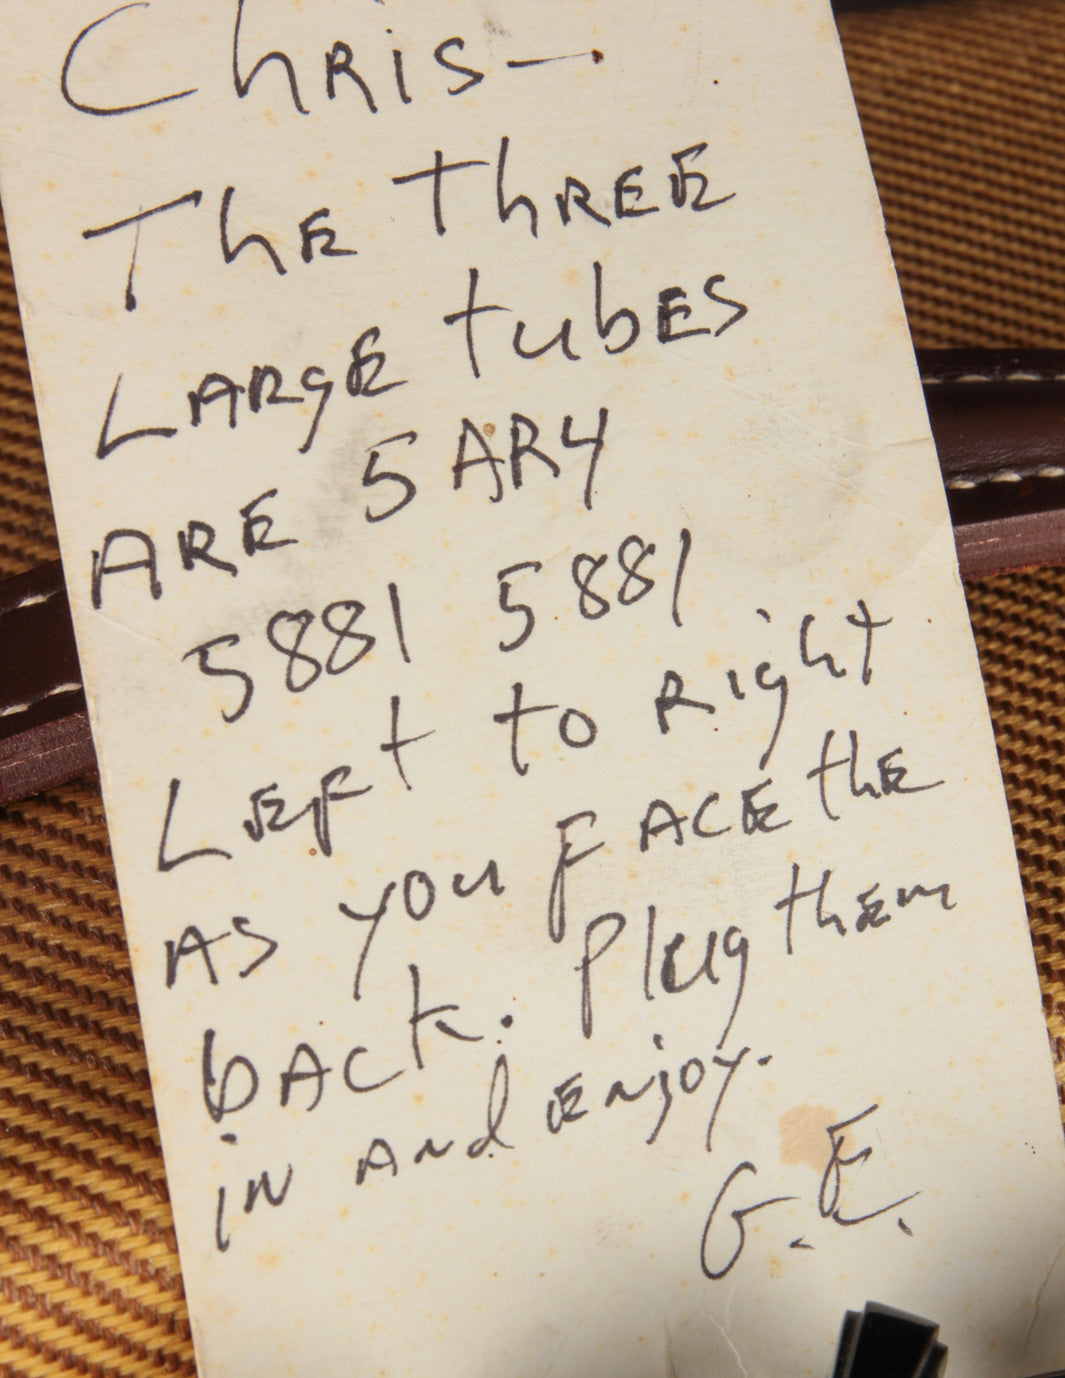 Chris—.
The three
Large tubes
Are 5AR4
5881 5881
Left to Right
As you FACE the
bACK. Plug them
in And Enjoy.
G.E.